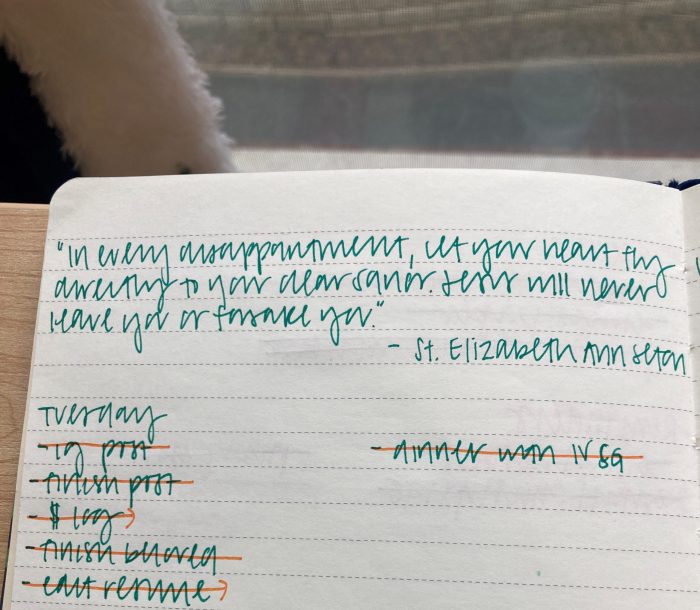 "In every disappointment, let your heart fly
directly to your dear Savior. Jesus will never
leave you or forsake you."
- St. Elizabeth Ann Seton
Tuesday
- IG post
- dinner w/
- finish post
- $ log →
- finish beloved
- edit resume →